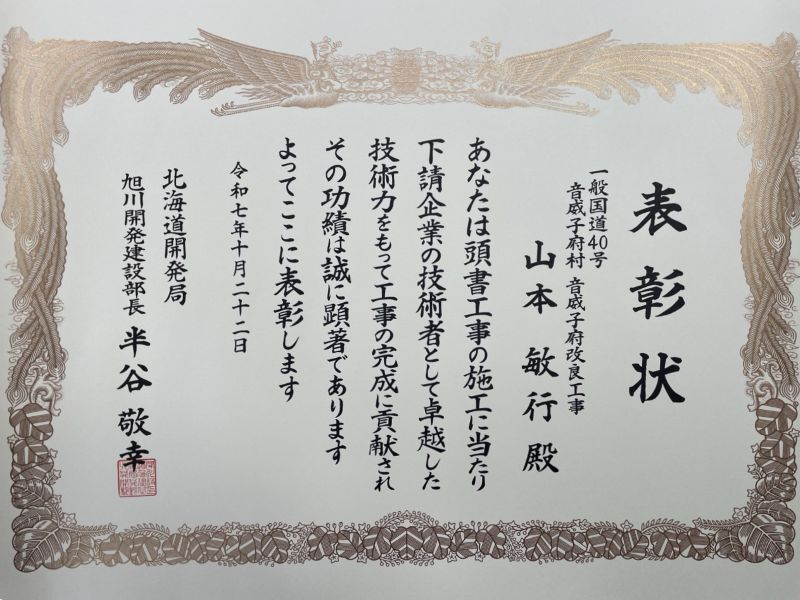 表彰状
一般国道40号
音威子府村 音威子府改良工事
山本 敏行 殿
あなたは頭書工事の施工に当たり
下請企業の技術者として卓越した
技術力をもって工事の完成に貢献され
その功績は誠に顕著であります
よってここに表彰します
令和七年十月二十二日
北海道開発局
旭川開発建設部長 半谷 敬幸